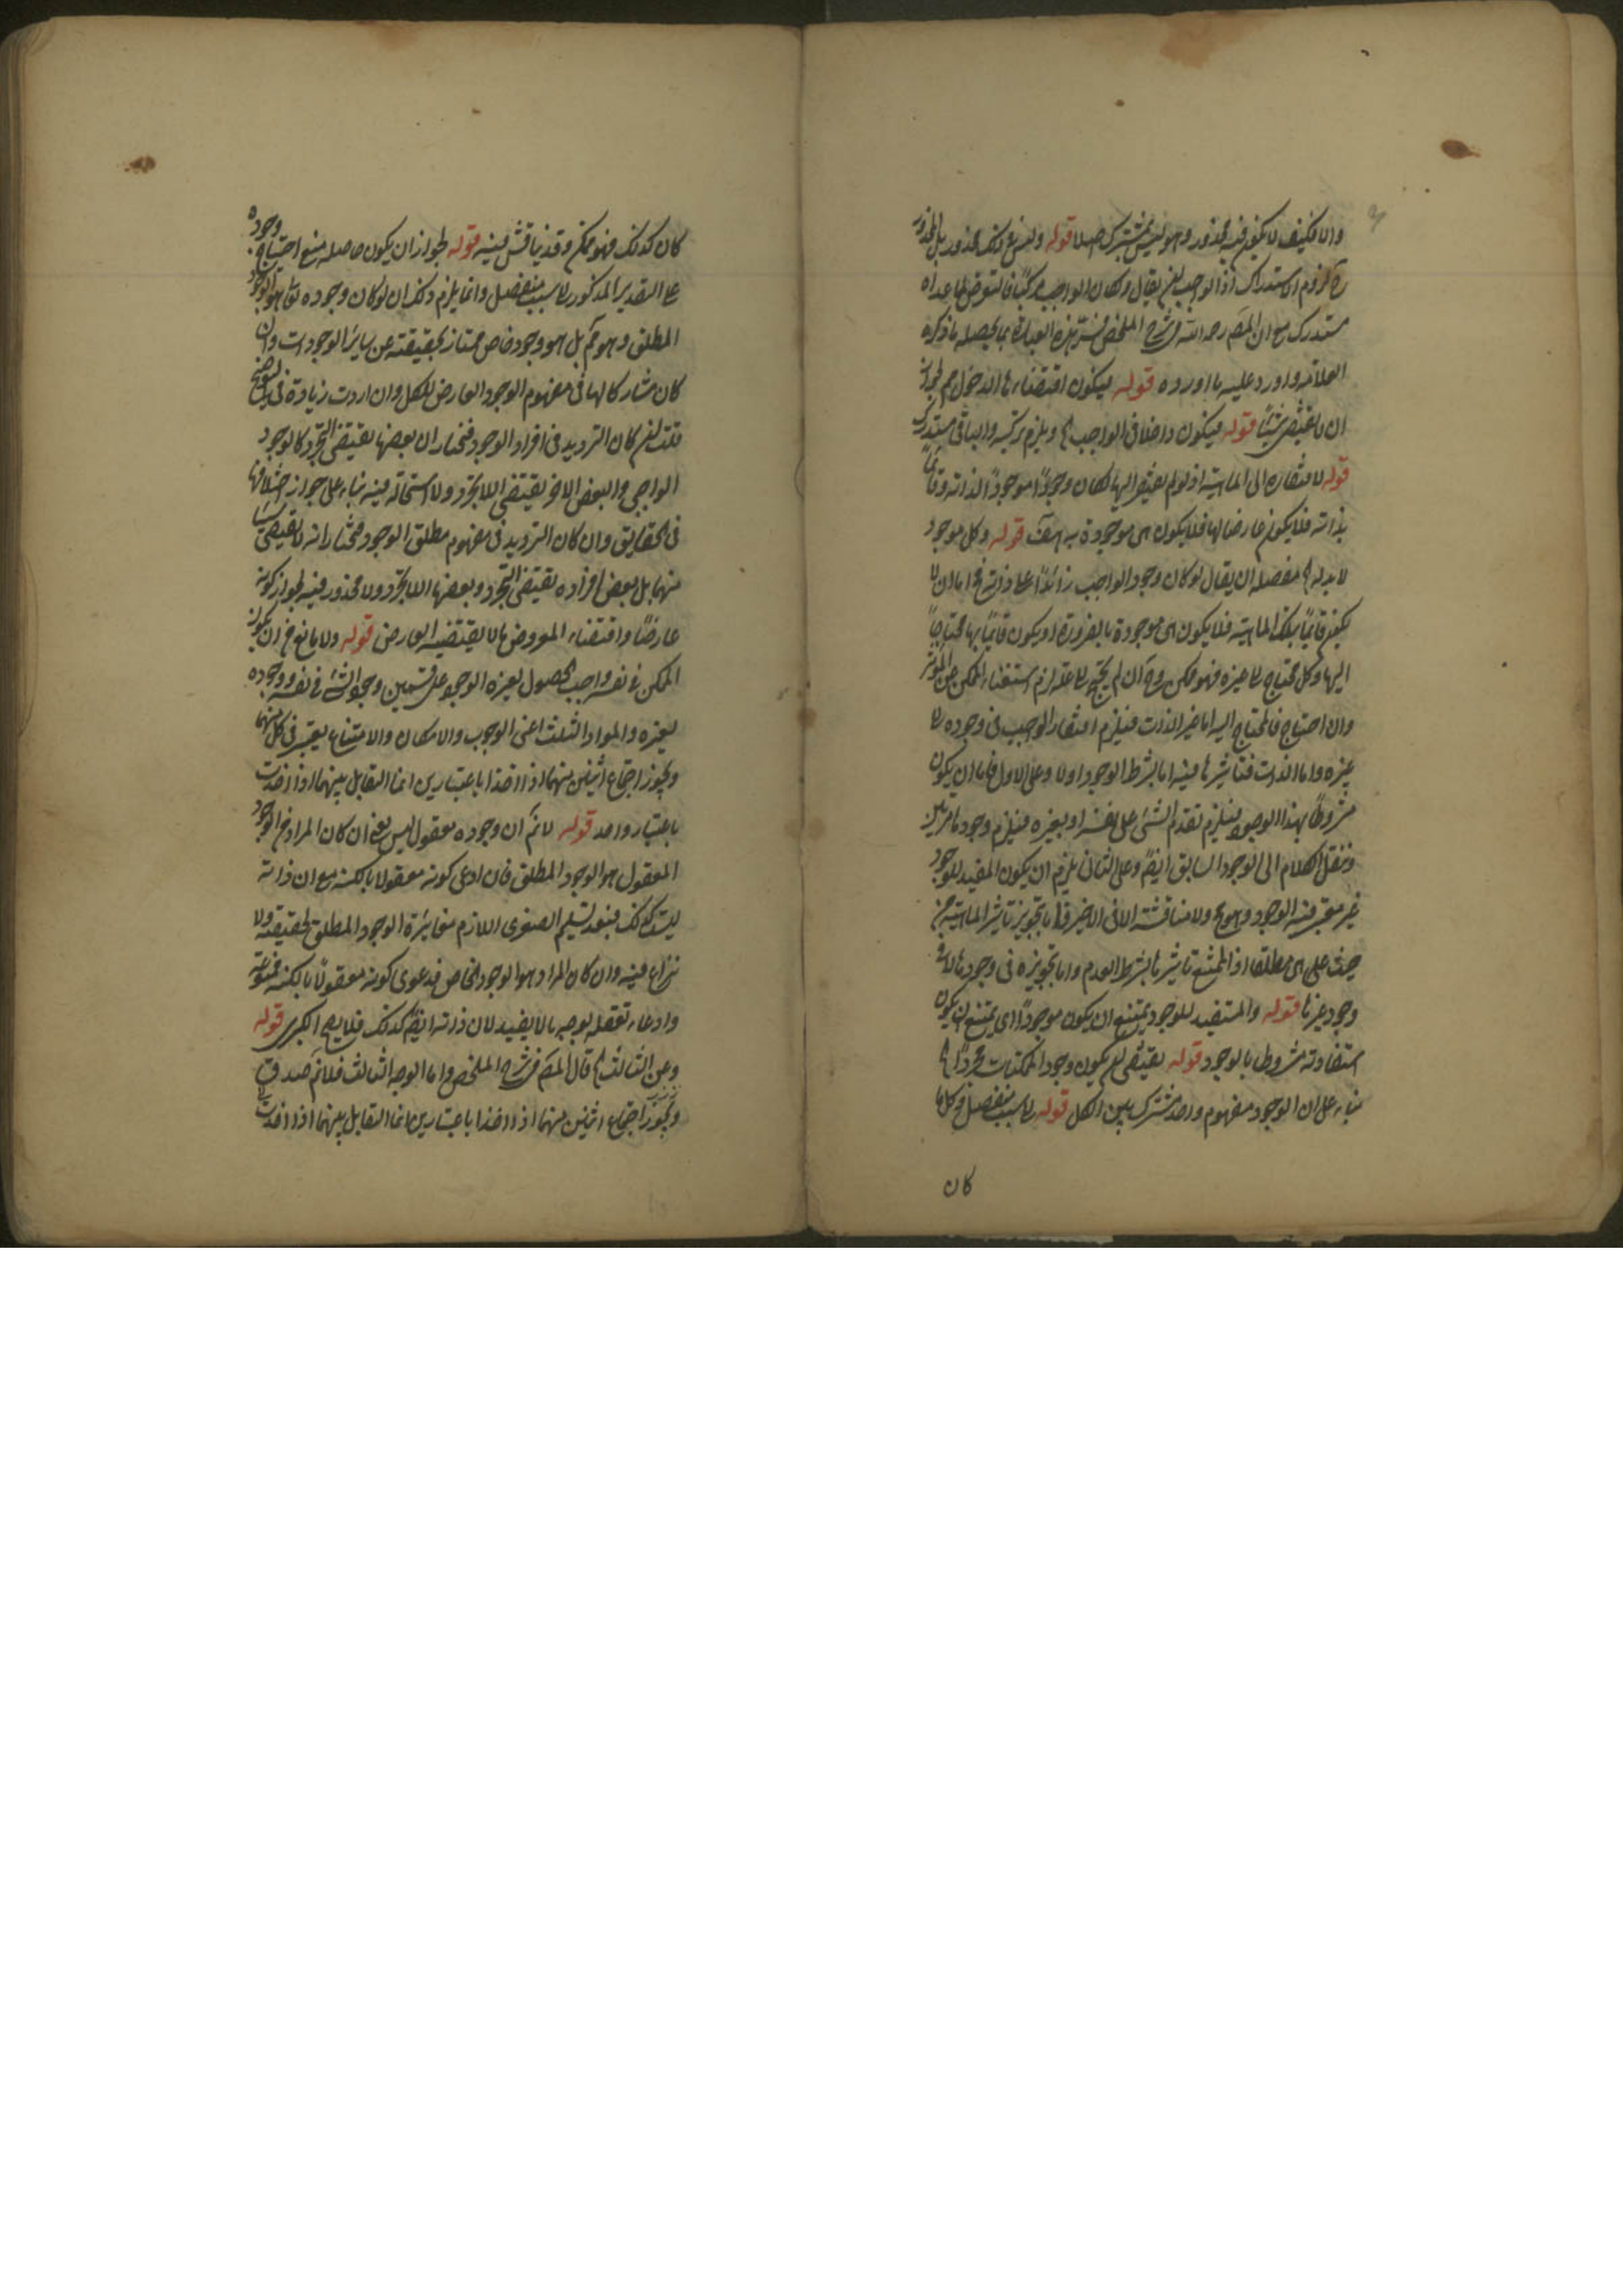 والا فكيف لا يكون فيه محذور وهو ليس بمشترك اصلا قوله وليس ذلك بمحذور بل المحذور
ح لزوم استدراك اذ الواجب يقال لكان الواجب مركبا فالتعرض لما عداه
مستدرك مع ان المصـ رحمه الله في شرح الملخص فسر هذه العبارة بما يحصله ما ذكره
العلامة واورد عليه ما اورده قوله فيكون اقتضاء الدخول
ان لا يقتضي شيئا قوله فيكون داخلا في الواجب ويلزم تركيبه والباقي مستدرك
قوله لافتقاره الى الماهية اذ لو لم يفتقر اليها لكان وجودا موجودا لذاته وقائما
بذاته فلا يكون عارضا لها فلا يكون هي موجودة به هف قوله وكل موجود
لا بد له مفصله ان يقال لو كان وجود الواجب زائدا على ذاته فاما ان لا
يكون قائما بتلك الماهية فلا يكون هي موجودة بالضرورة او يكون قائما بها محتاجا
اليها وكل محتاج الى غيره فهو ممكن وح ان لم يحتج الى علة لزم استغناء الممكن عن المؤثر
وان احتاج فالمحتاج اليه اما غير الذات فيلزم افتقار الواجب في وجوده الى
غيره واما الذات فتأثيرها فيه اما بشرط الوجود اولا وعلى الاول فاما ان يكون
مشروطا بهذا الوجود فيلزم تقدم الشيء على نفسه او بغيره فيلزم وجوده مرتين
وننقل الكلام الى الوجود السابق ايضا وعلى الثاني يلزم ان يكون المفيد للوجود
غير معتبر فيه الوجود وهو مح ولا مناقشة الا في الاخير فاما بتجويز تأثير الماهية من
حيث هي هي مطلقا اذ الممتنع تأثيرها بشرط العدم واما بتجويزه في وجودها لا في
وجود غيرها قوله والمستفيد للوجود يمتنع ان يكون موجودا اي يمتنع ان يكون
استفادته مشروطا بالوجود قوله يقتضي ان يكون وجود الممكنات مجردا
بناء على ان الوجود مفهوم واحد مشترك بين الكل قوله الى سبب منفصل وكل ما
كان
كان كذلك فهو ممكن وقد يناقش فيه قوله لجواز ان يكون حاصله منع احتياج وجوده
على التقدير المذكور الى سبب منفصل وانما يلزم ذلك ان لو كان وجوده تعالى هو الوجود
المطلق وهو مم بل هو وجود خاص ممتاز بحقيقته عن سائر الوجودات وان
كان مشاركا لها في مفهوم الوجود العارض للكل وان اردت زيادة في التوضيح
قلت ان كان الترديد في افراد الوجود فنختار ان بعضها يقتضي التجرد كالوجود
الواجبي والبعض الاخر يقتضي اللاتجرد ولا استحالة فيه بناء على جواز اختلافها
في الحقايق وان كان الترديد في مفهوم مطلق الوجود فنختار انه لا يقتضي شيئا
منهما بل بعض افراده يقتضي التجرد وبعضها اللاتجرد ولا محذور فيه لجواز كونه
عارضا واقتضاء المعروض ما لا يقتضيه العارض قوله ولا مانع من ان يكون
الممكن في نفسه واجب الحصول لغيره الوجود على قسمين وجود الشئ في نفسه ووجوده
لغيره والمواد الثلث اعني الوجوب والامكان والامتناع يعتبر في كل منهما
ويجوز اجتماع اثنين منهما اذا اخذا باعتبارين انما التقابل بينهما اذا اخذت
باعتبار واحد قوله لانم ان وجوده معقول ليس يعني ان كان المراد من الوجود
المعقول هو الوجود المطلق فان ادعى كونه معقولا بالكنه مع ان ذاته
ليست كذلك فبعد تسليم الصغرى اللازم مغايرة الوجود المطلق لحقيقته ولا
نزاع فيه وان كان المراد هو الوجود الخاص فدعوى كونه معقولا بالكنه ممنوعة
وادعاء تعقله بوجه ما لا يفيد لان ذاته ايضا كذلك فلا يصح الكبرى قوله
وعن الثالث قال المصـ في شرح الملخص واما الوجه الثالث فلانم صدق
ويجوز اجتماع اثنين منهما اذا اخذا باعتبارين انما التقابل بينهما اذا اخذت